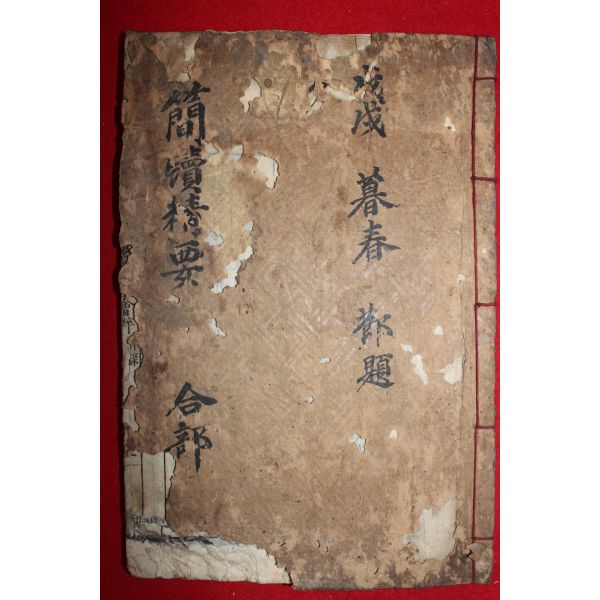 戊戌 暮春 題
簡牘精要 合部